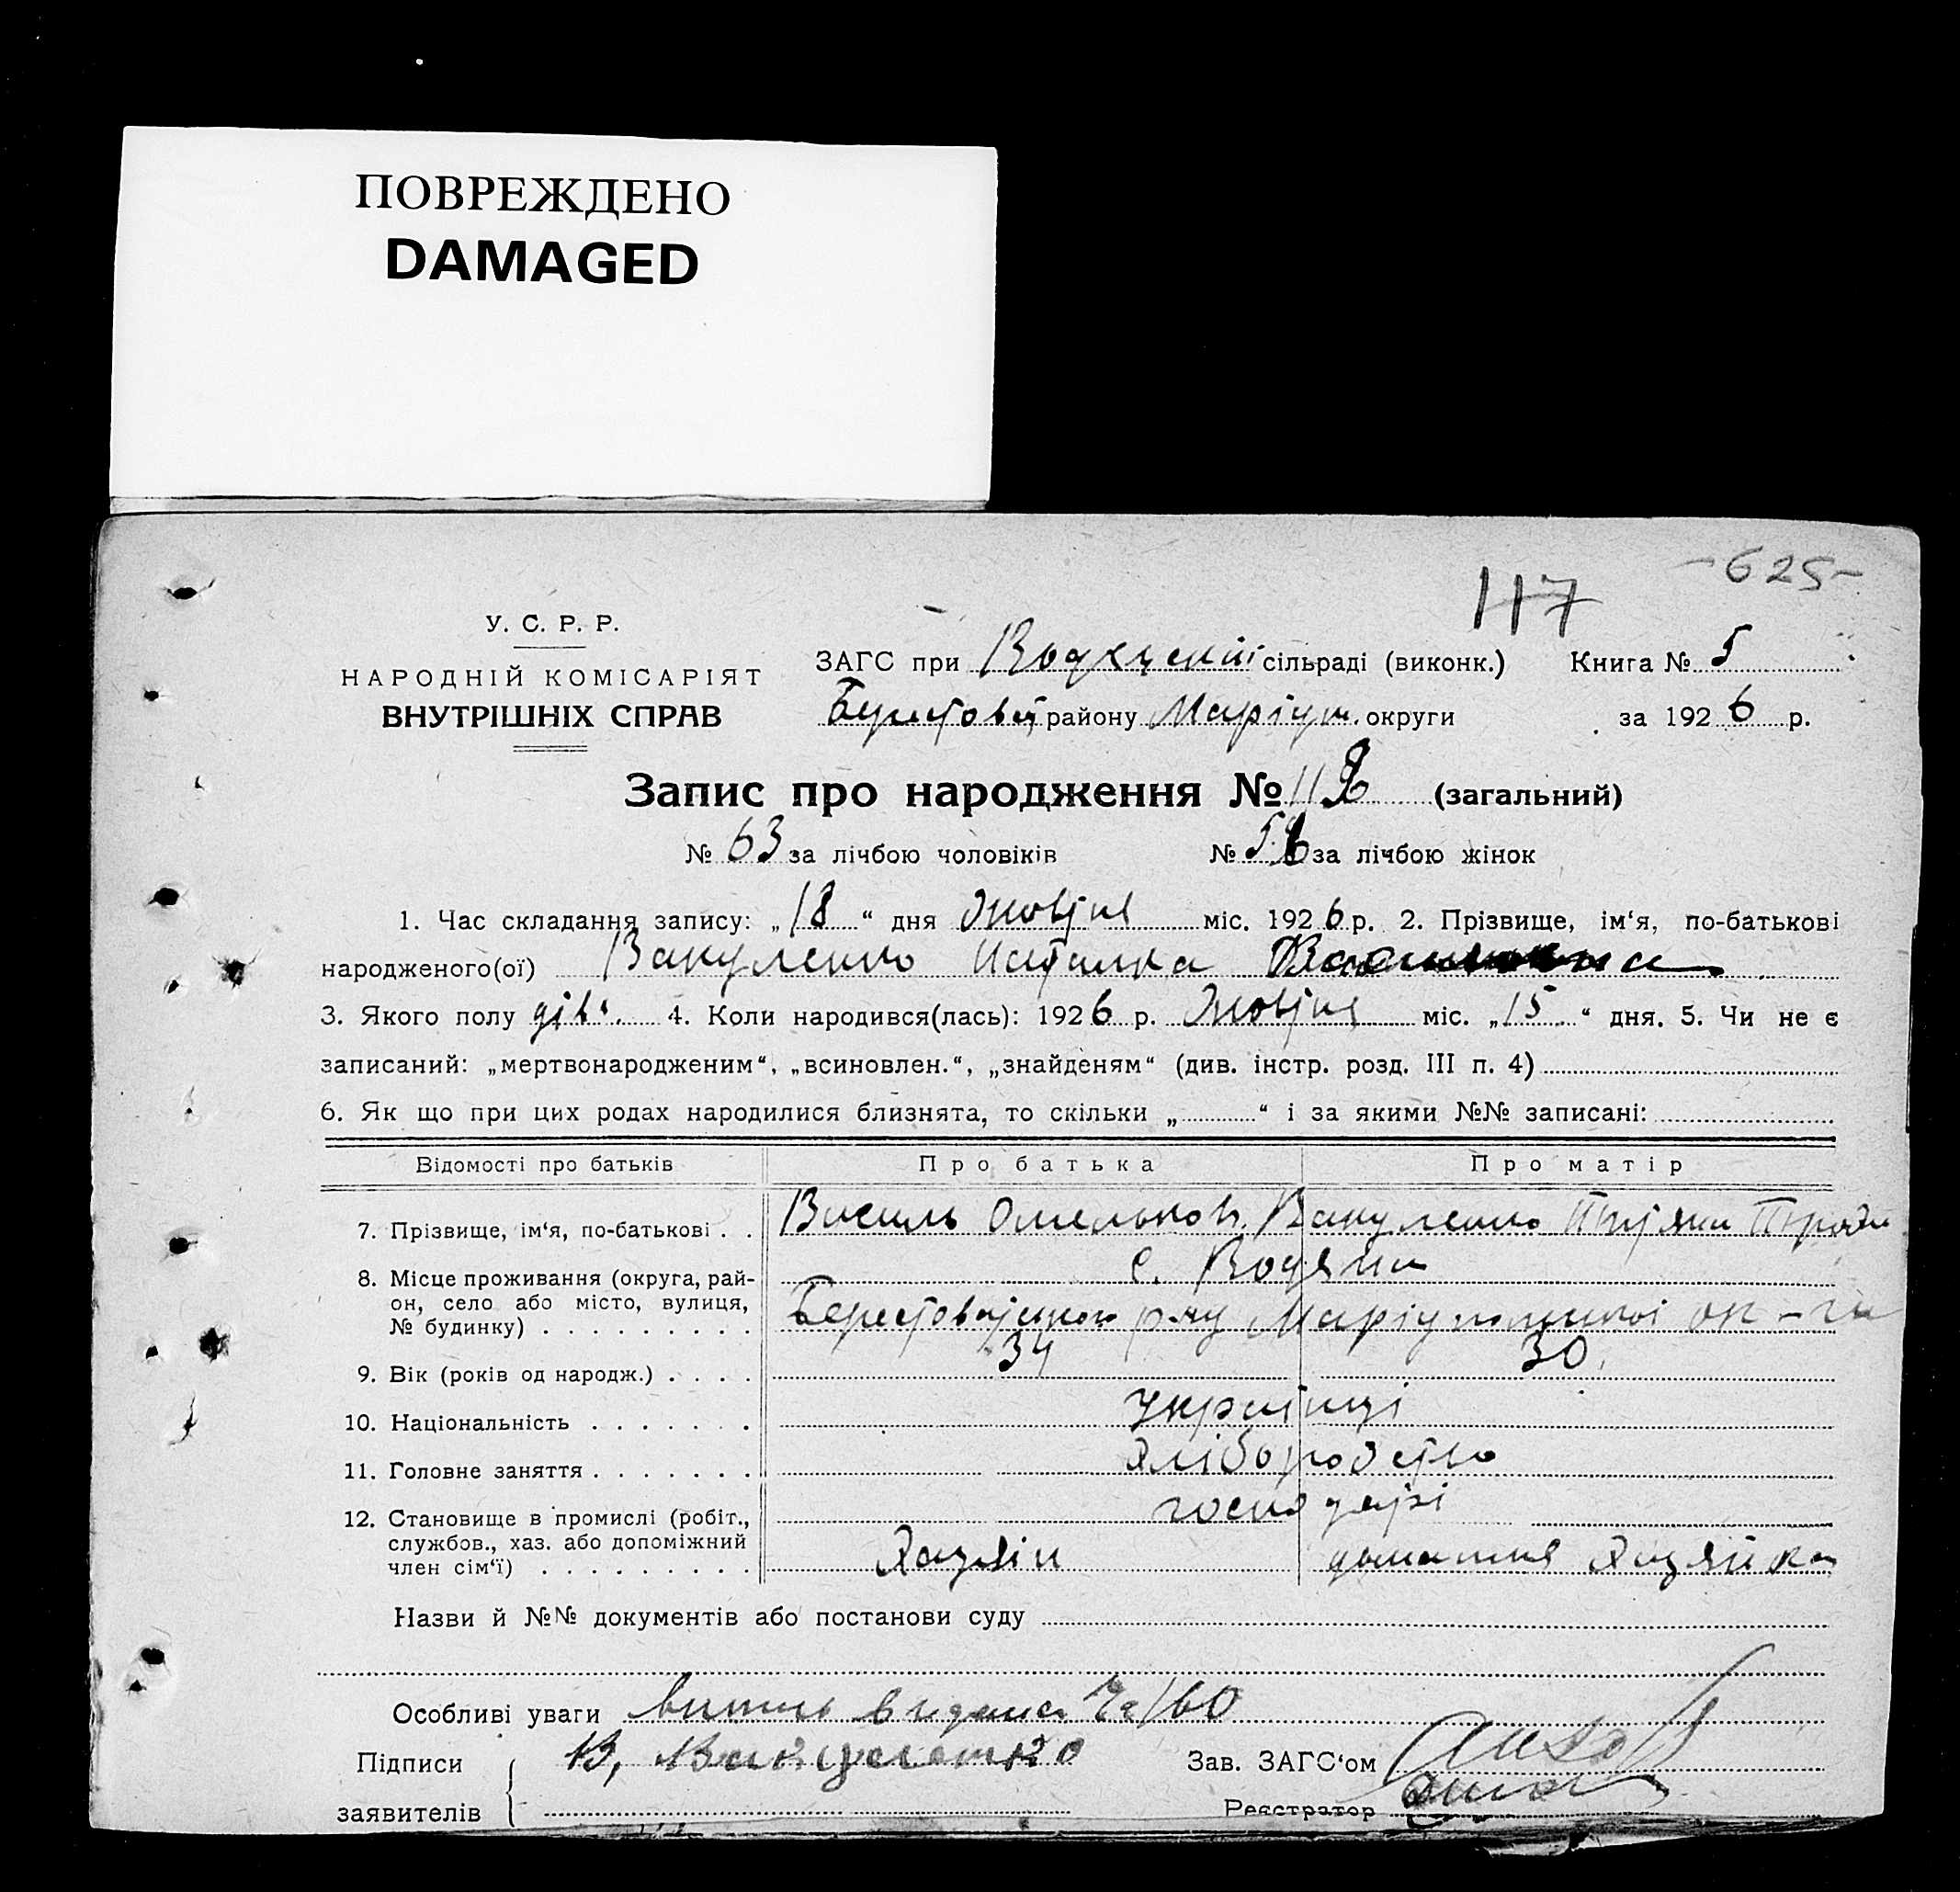 ПОВРЕЖДЕНО
DAMAGED
-625-
117
У. С. Р. Р.
НАРОДНІЙ КОМІСАРІЯТ
ВНУТРІШНІХ СПРАВ
ЗАГС при сільраді (виконк.) Книга № 5
району Маріуп. округи за 1926 р.
Запис про народження № 118 (загальний)
№ 63 за лічбою чоловіків № 5 за лічбою жінок
1. Час складання запису: „18“ дня Жовтня міс. 1926 р. 2. Прізвище, ім‘я, по-батькові
народженого(ої) Вакуленко Наталка
3. Якого полу дівч. 4. Коли народився(лась): 1926 р. Жовтня міс. „15“ дня. 5. Чи не є
записаний: „мертвонародженим“, „всиновлен.“, „знайденям“ (див. інстр. розд. III п. 4)
6. Як що при цих родах народилися близнята, то скільки „ “ і за якими №№ записані:
Відомості про батьків Про батька Про матір
7. Прізвище, ім‘я, по-батькові . . Василь Омельков. Вакуленко
8. Місце проживання (округа, рай- с. Водяни
он, село або місто, вулиця,
№ будинку) . . . . . . . . . Берестовського р-ну Маріупольської ок-ги
9. Вік (років од народж.) . . . . 34 30
10. Національність . . . . . . . Українці
11. Головне заняття . . . . . . . Хліборобство
12. Становище в промислі (робіт., господарі
службов., хаз. або допоміжний
член сім‘ї) . . . . . . . . . Хазяїн домашня Хазяйка
Назви й №№ документів або постанови суду
Особливі уваги
Підписи В. Вакуленко Зав. ЗАГС‘ом
заявителів Реєстратор